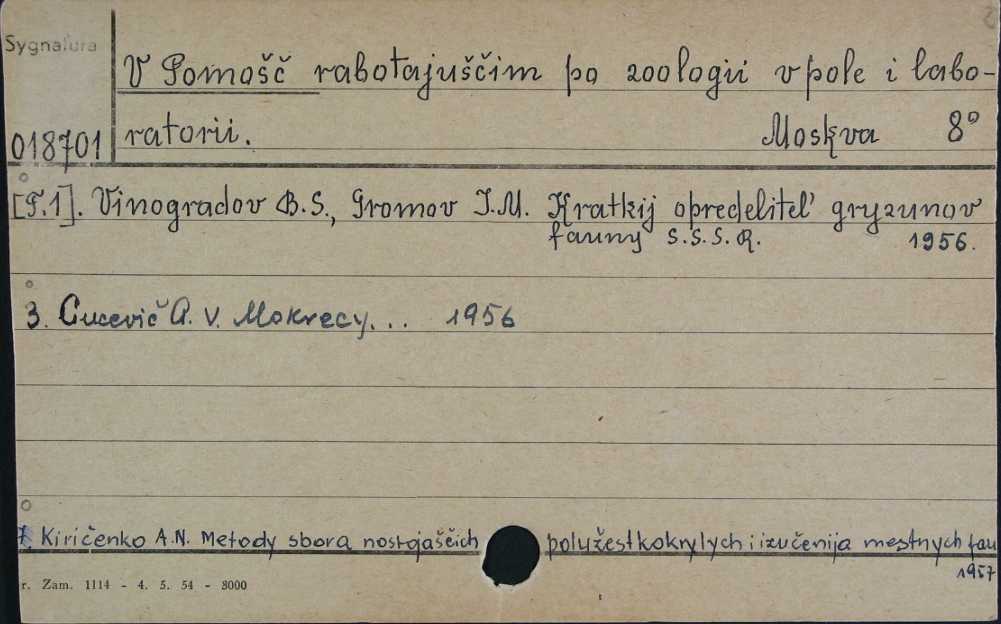 Sygnatura
V Pomošč rabotajuščim po zoologii v pole i labo-
018701
ratorii. Moskva 8°
[T.1]. Vinogradov B.S., Gromov I.M. Kratkij opredelitel' gryzunov
fauny S.S.S.R. 1956.
3. Gucevič A. V. Mokrecy... 1956
Kiričenko A.N. Metody sbora nostojaščich polužestkokrylych i izučenija mestnych fau
1957
r. Zam. 1114 - 4. 5. 54 - 3000